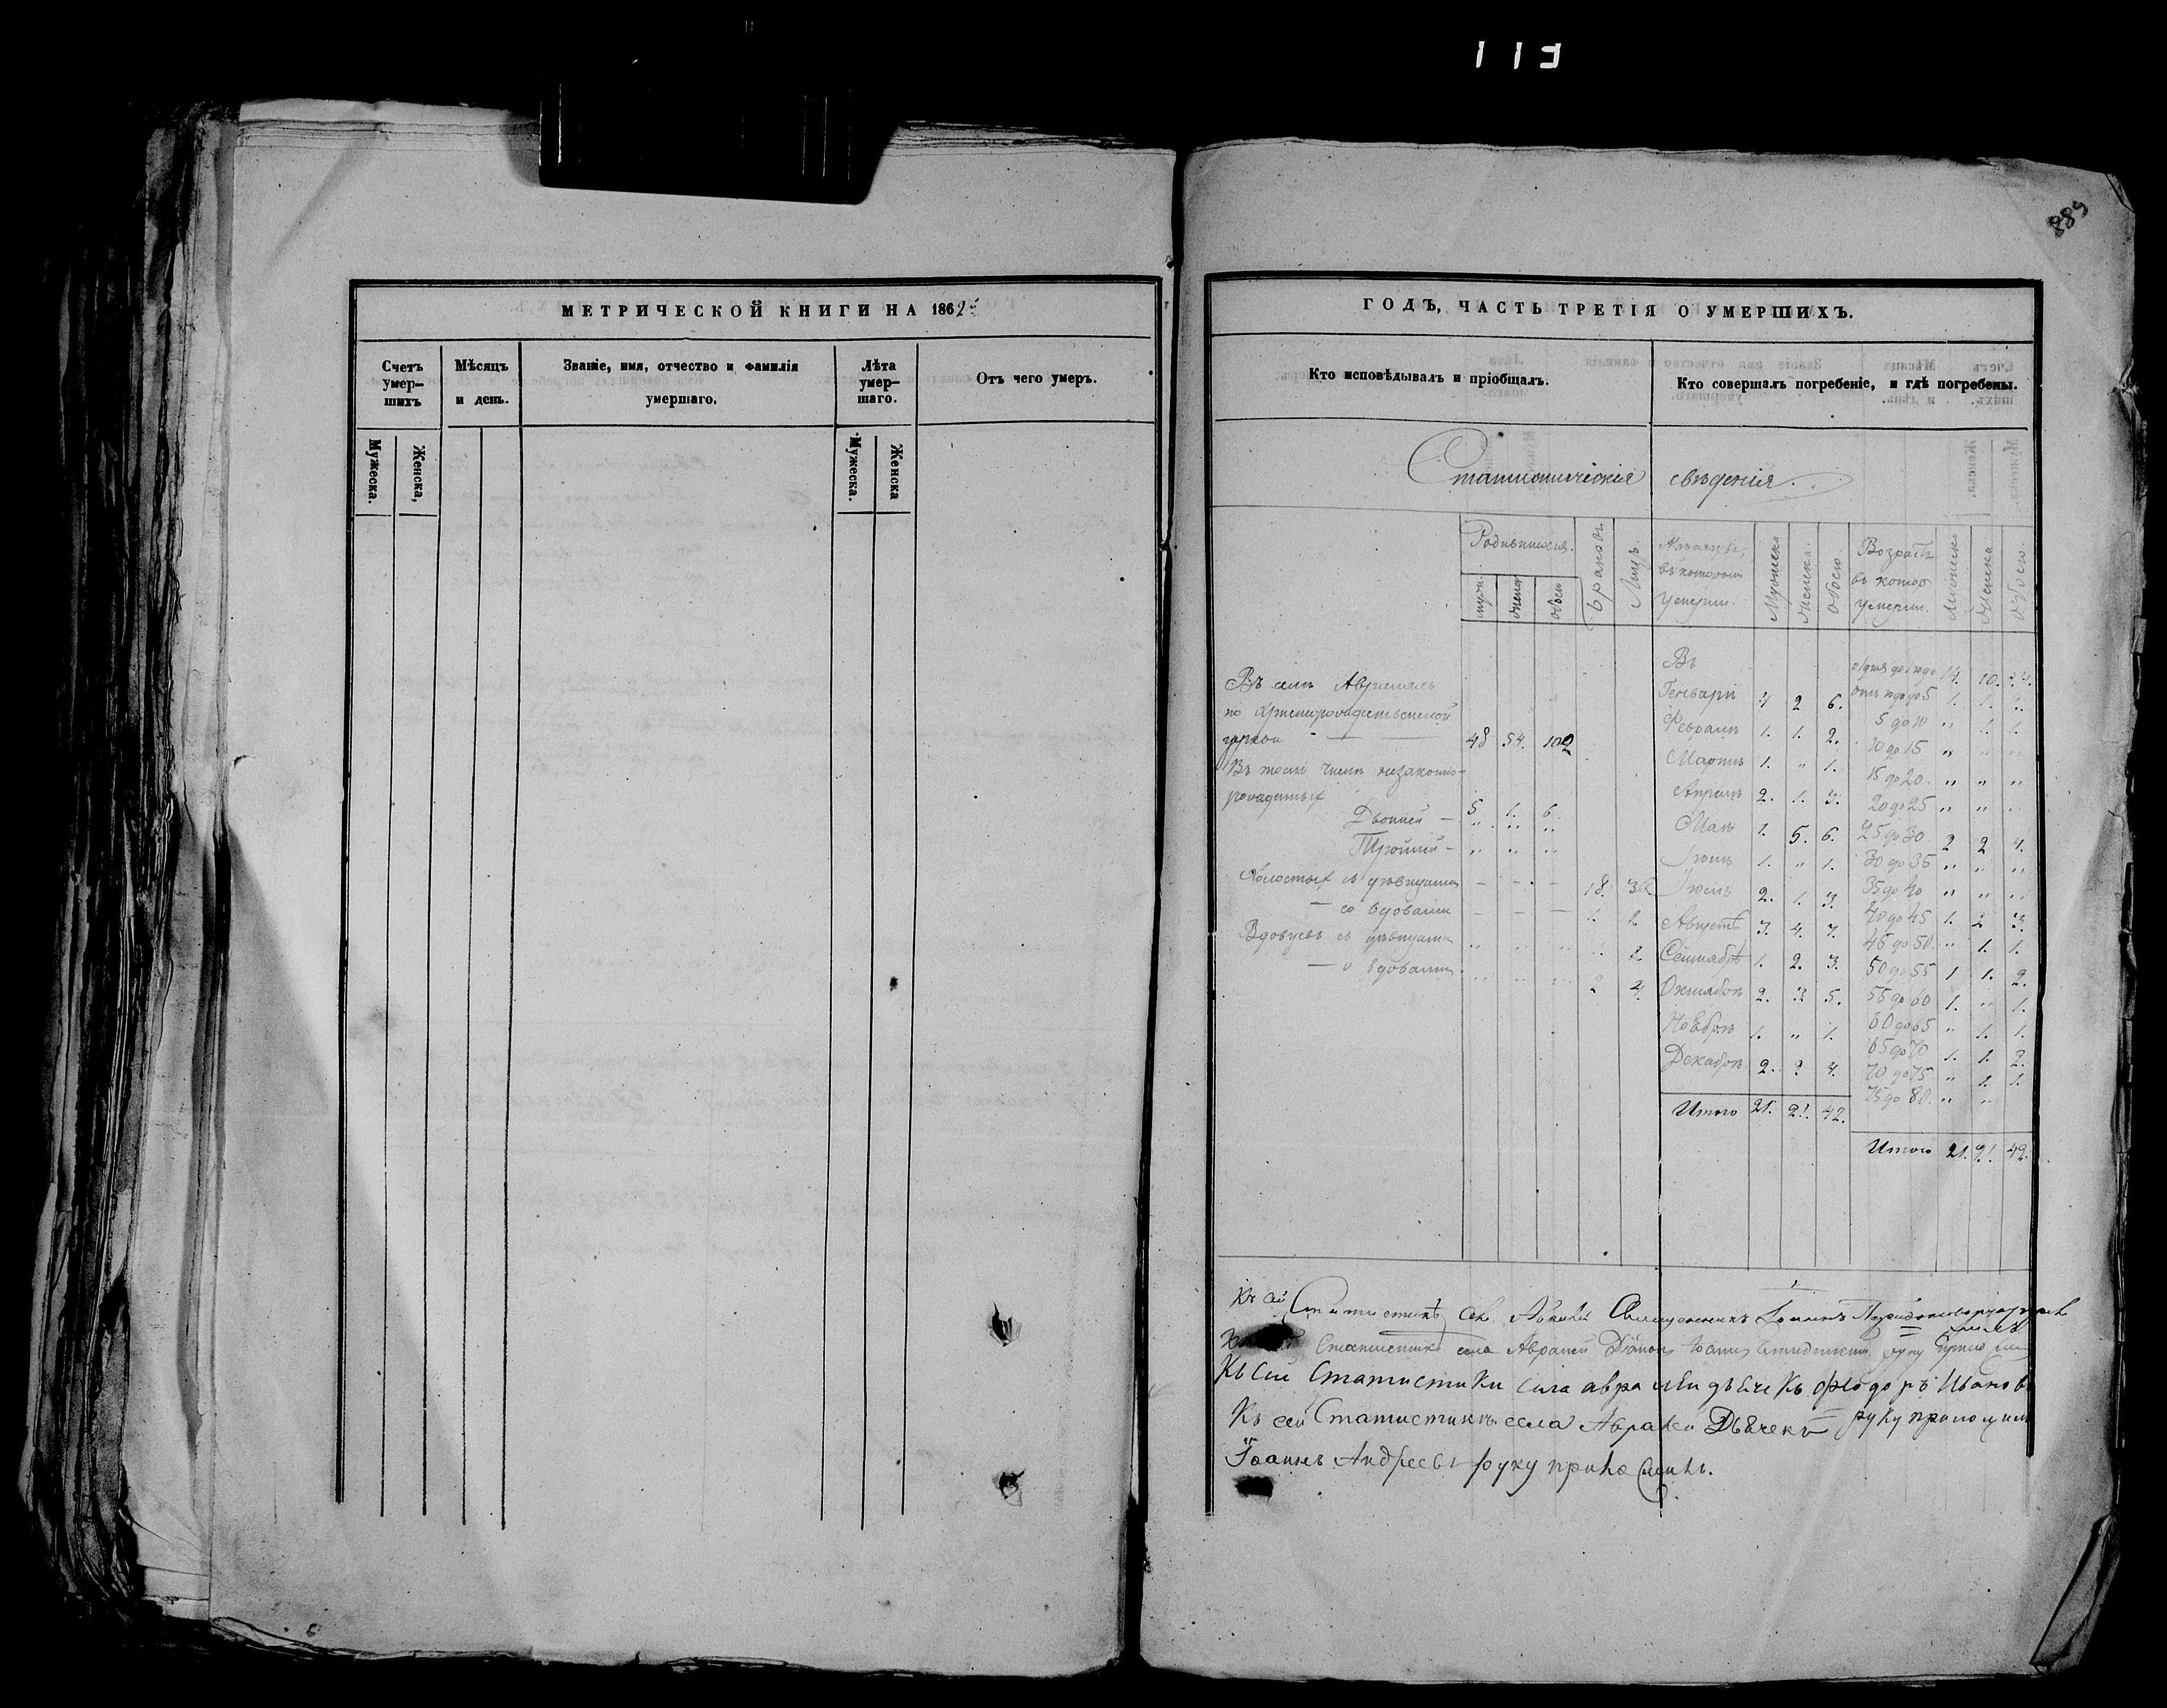 113
889
МЕТРИЧЕСКОЙ КНИГИ НА 1862й
Счетъ умер-шихъ
Мѣсяцъ и день.
Званіе, имя, отчество и фамилія умершаго.
Лѣта умер-шаго.
Отъ чего умеръ.
Мужеска.
Женска,
Мужеска.
Женска
ГОДЪ, ЧАСТЬ ТРЕТІЯ О УМЕРШИХЪ.
Кто исповѣдывалъ и пріобщалъ.
Кто совершалъ погребеніе, и гдѣ погребены.
Статистическія свѣденія.
Родившихся.
муж. женс. обоего
браковъ
Лицъ.
въ которомъ умерли.
Мужеска
Женска.
Обоего
Возрастъ въ котор умерли.
Мужеска
Женска
Обоего.
Въ селѣ
по Христорождественской
церкви 48 54. 102
Въ томъ числѣ незаконно-
рожденныхъ 5 1. 6.
Двойней — " " "
Тройней — " " "
Холостыхъ съ дѣвицами — — — 18.
— со вдовами — — — 2
Вдовцевъ съ дѣвицами " " " 2
— со вдовами " " " 2 4.
Въ
Генварѣ 4 2 6.
Февралѣ 1. 1. 2.
Мартѣ 1. " 1.
Апрѣлѣ 2. 1. 3.
Маѣ 1. 5. 6.
Іюнѣ 1. " 1.
Іюлѣ 2. 1. 3.
Августѣ 3. 4. 7.
Сентябрѣ 1. 2. 3.
Октябрѣ 2. 3 5.
Ноябрѣ 1. " 1.
Декабрѣ 2. 2 4.
Итого 21. 21. 42.
до года 14. 10. 24.
отъ года до 5 1. 1. 2.
5 до 10 " 1. 1.
10 до 15 " " "
15 до 20 " " "
20 до 25 " " "
25 до 30 2 2 4.
30 до 35 " " "
35 до 40 " " "
40 до 45 1. 2 3.
45 до 50. " 1. 1.
50 до 55 1 1. 2.
55 до 60 1. " 1.
60 до 65 " 1. 1.
65 до 70 1. 1. 2.
70 до 75 " 1. 1.
75 до 80. " "
Итого 21. 21. 42.
Къ сей Статистикѣ Священникъ Іоаннъ
Статистикѣ села Діаконъ Іоаннъ руку
Къ сей Статистики села дьячекъ Ѳеодоръ Ивановъ
руку приложилъ
Къ сей Статистикѣ села Дьячекъ
Іоаннъ Андреевъ руку приложилъ.